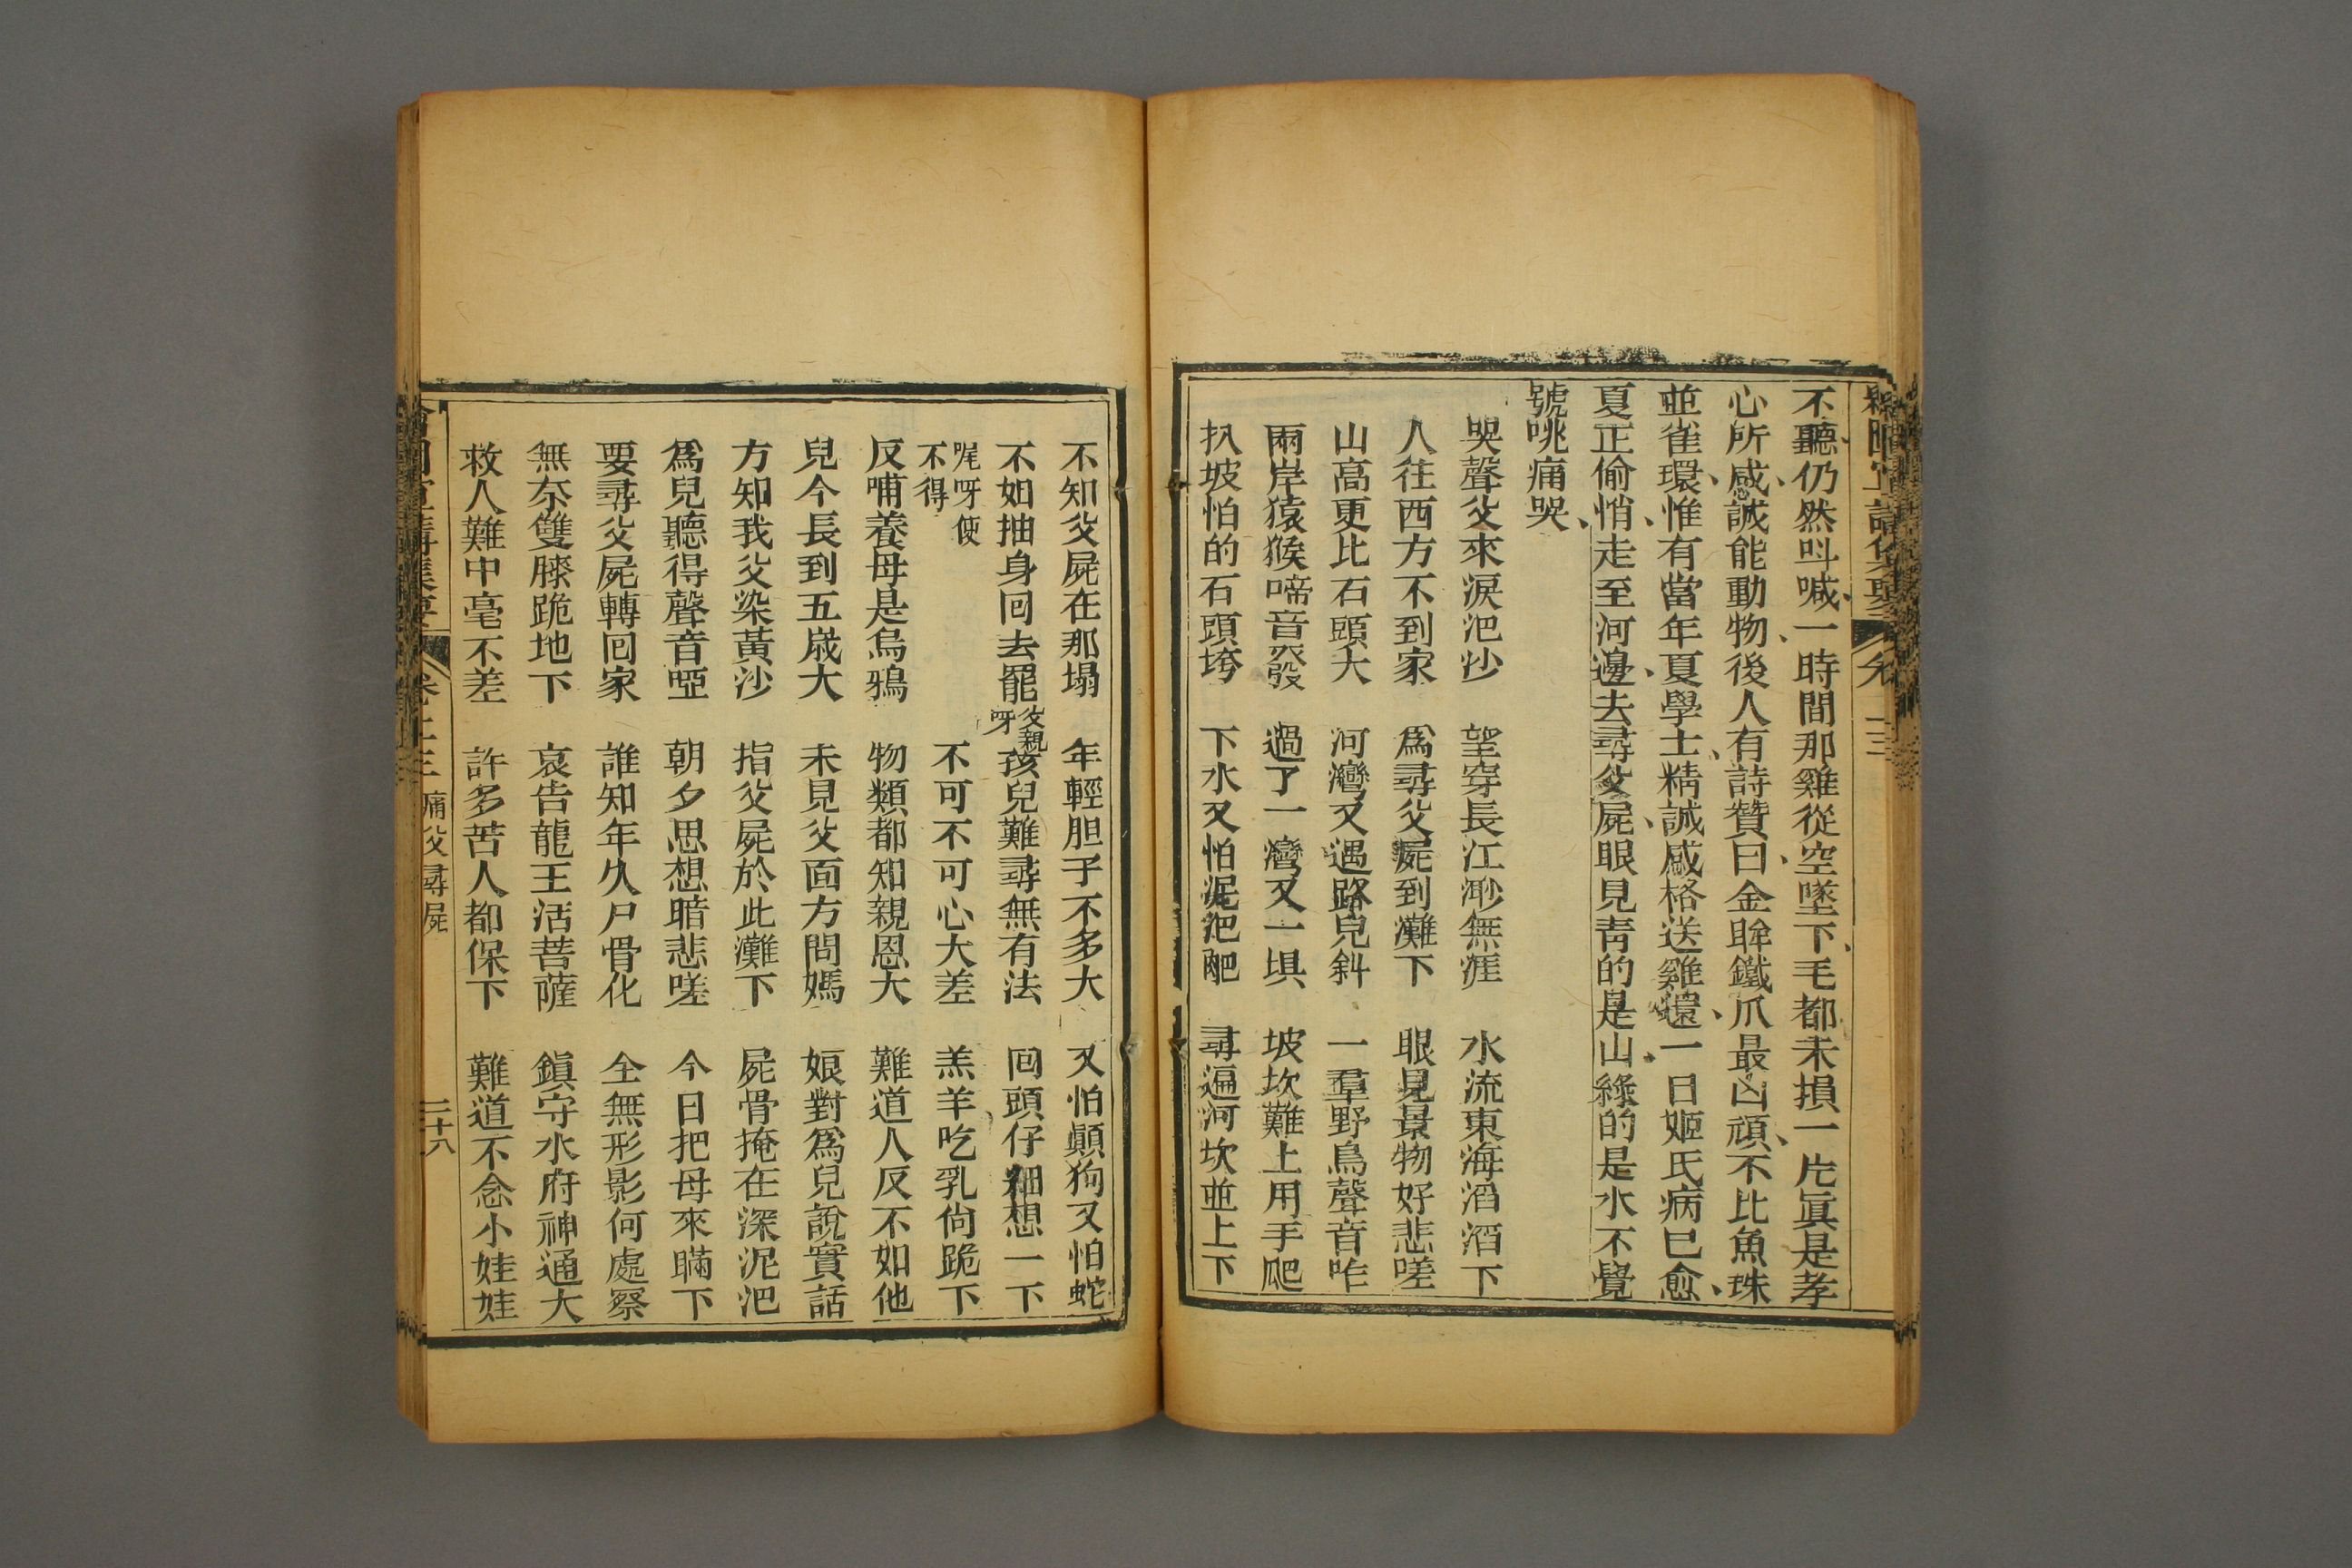 不聽仍然叫喊一時間那雞從空墜下毛都未損一片眞是孝
心所感誠能動物後人有詩贊曰金眸鐵爪最凶頑不比魚珠
並雀環惟有當年夏學士精誠感格送雞還一日姬氏病已愈
夏正偷悄走至河邊去尋父屍眼見青的是山綠的是水不覺
號咷痛哭
哭聲父來淚沱沙 望穿長江渺無涯 水流東海滔滔下
人往西方不到家 為尋父屍到灘下 眼見景物好悲嗟
山高更比石頭大 河灣又遇路兒斜 一羣野鳥聲音咋
兩岸猿猴啼音發 過了一灣又一埧 坡坎難上用手爬
扒坡怕的石頭垮 下水又怕泥沱𦚐 尋遍河坎並上下
不知父屍在那塌 年輕胆子不多大 又怕顛狗又怕蛇
不如抽身回去罷 父親呀 孩兒難尋無有法 回頭仔細想一下
㖞呀使不得 不可不可心大差 羔羊吃乳尙跪下
反哺養母是烏鴉 物類都知親恩大 難道人反不如他
兒今長到五歲大 未見父面方問媽 娘對為兒說實話
方知我父染黃沙 指父屍於此灘下 屍骨掩在深泥沱
為兒聽得聲音啞 朝夕思想暗悲嗟 今日把母來瞞下
要尋父屍轉回家 誰知年久尸骨化 全無形影何處察
無奈雙膝跪地下 哀告龍王活菩薩 鎭守水府神通大
救人難中毫不差 許多苦人都保下 難道不念小娃娃
卷十三 痛父尋屍 二十八